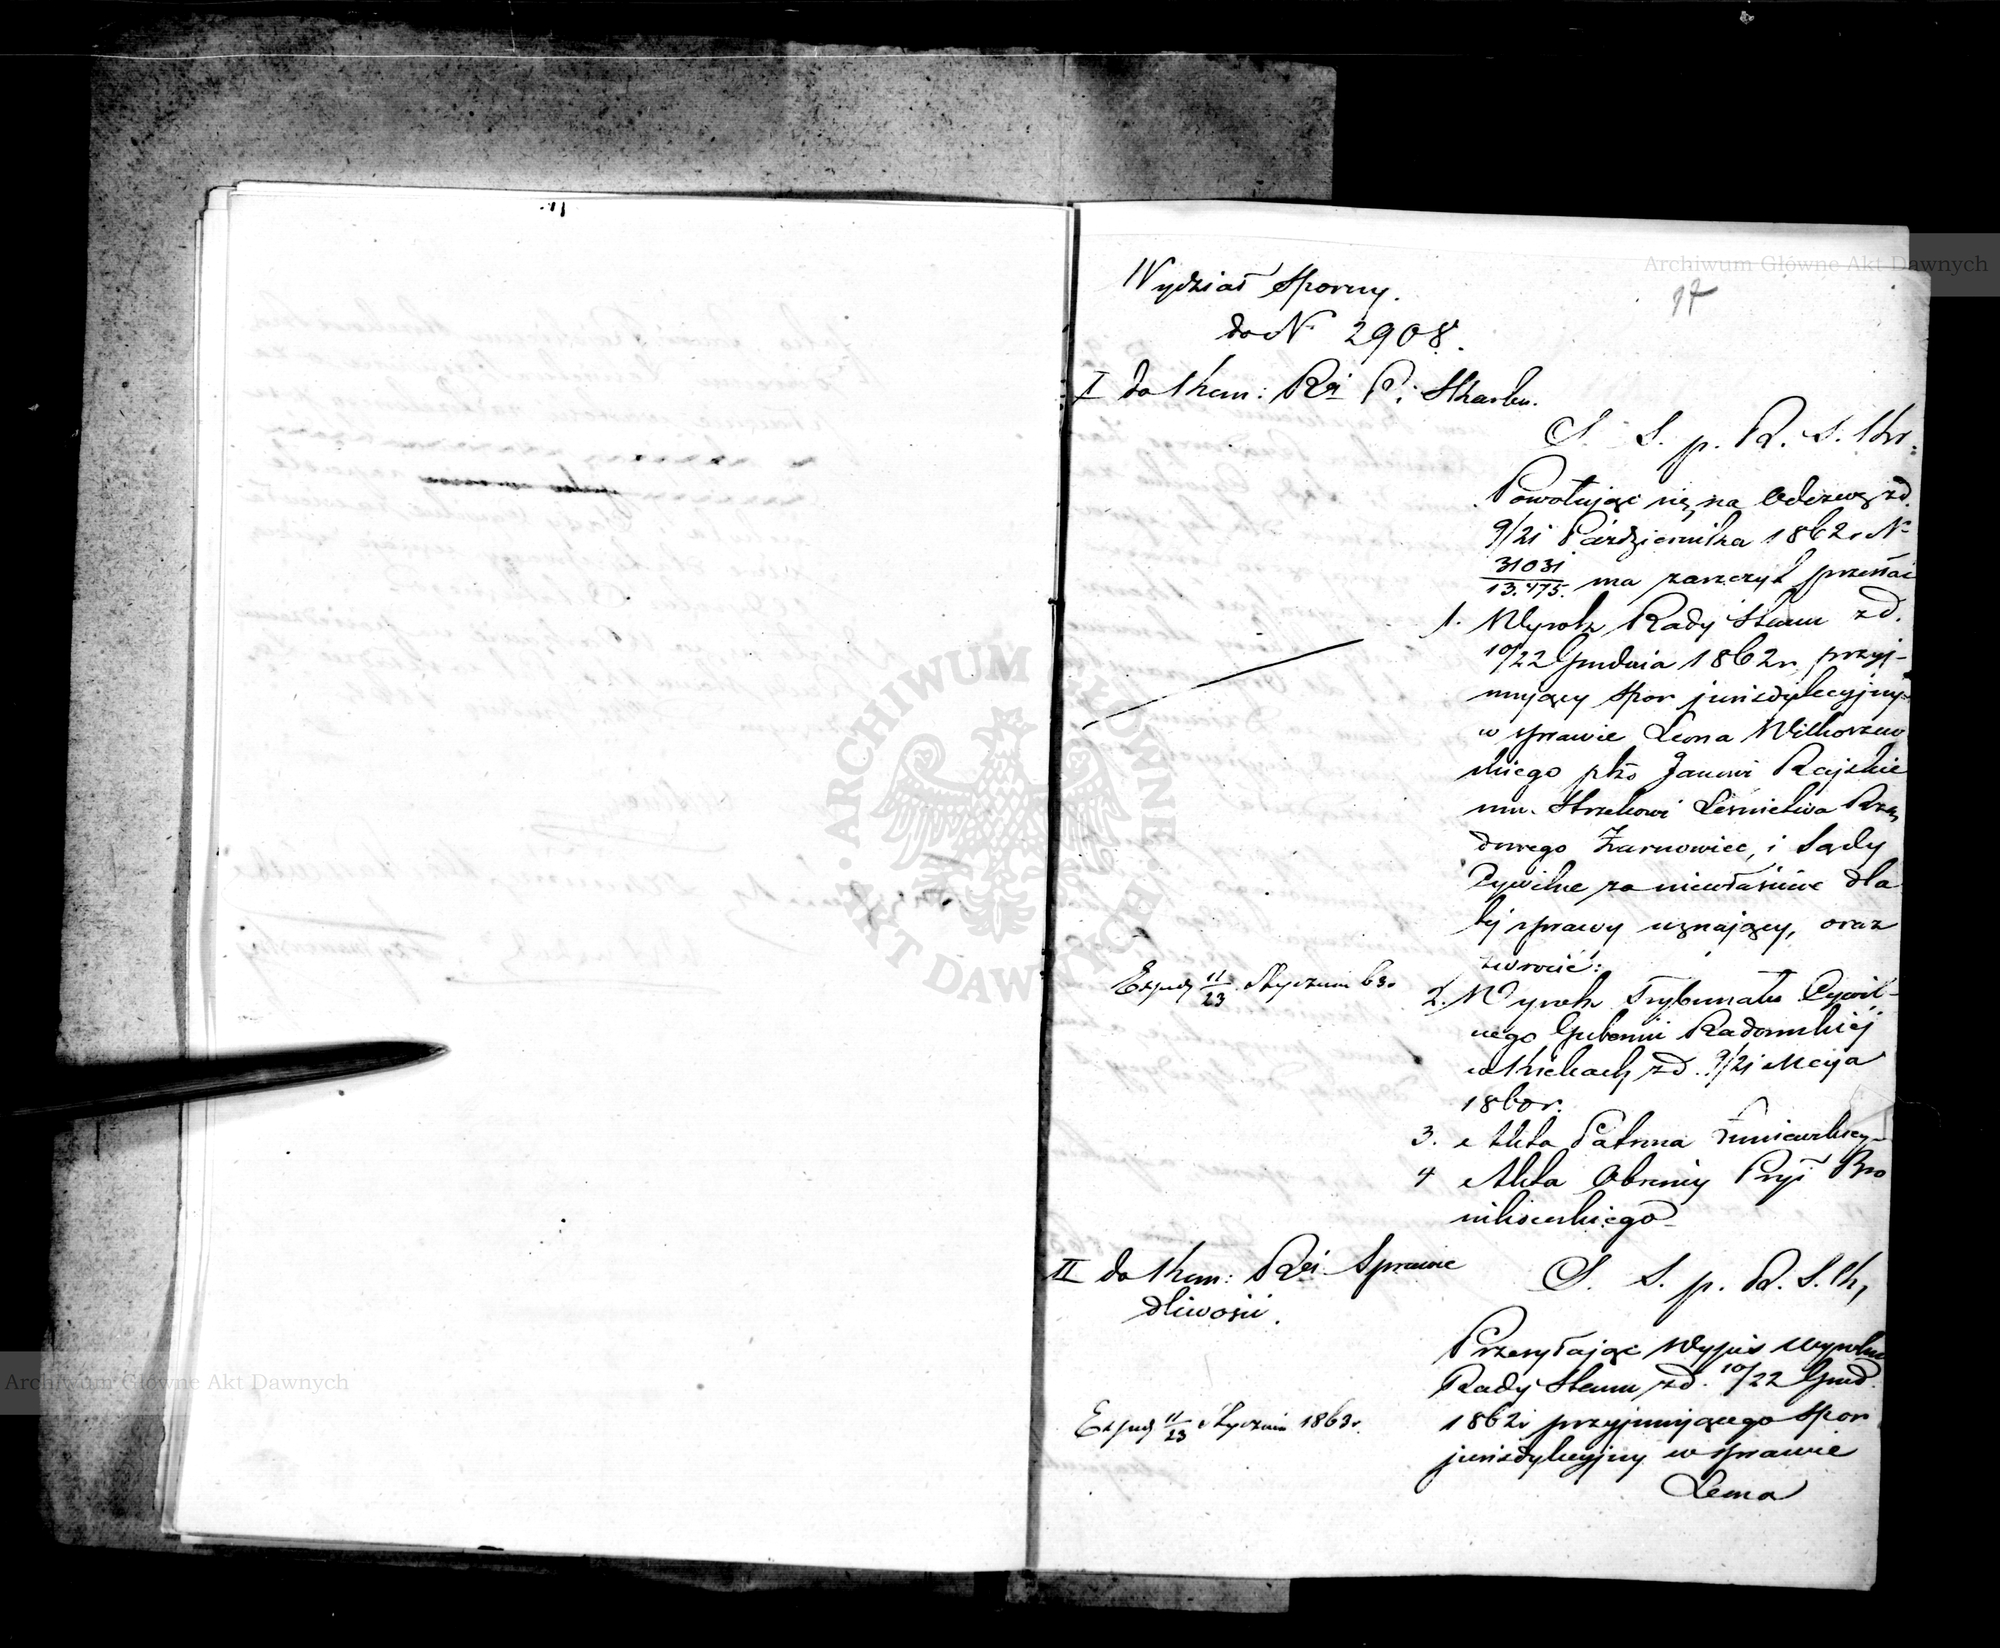 Archiwum Główne Akt Dawnych
17
Wydział Sporny.
do N 2908.
I do Kom: Rei P. i Skarbu.
S. S. p. R. S. Kr.
Powołując się na Odezwę z d.
9/21 Października 1862 r. N
31031/13.475. ma zaszczyt przesłać
1. Wyrok Rady Stanu z d.
10/22 Grudnia 1862 r. przyj-
mujący spór jurisdykcyjny
w sprawie Leona Wilkoszew
skiego płko Janowi Rajskie
mu Strzelcowi Leśnictwa Rzą
dowego Żarnowiec, i Sądy
Cywilne za niewłaściwe dla
tej sprawy uznający, oraz
zwrócić:
Exped 11/23 Stycznia 63 r.
2. Wyrok Trybunału Cywil-
nego Gubernii Radomskiej
w Kielcach z d. 9/21 Maja
1860 r.
3. Akta Patrona
4 Akta Obrońcy Pryi Bro
nikowskiego
II do Kom: Rei Sprawie
dliwości.
S. S. p. R. S. K,
Przesyłając Wypis Wyroku
Rady Stanu, z d. 10/22 Grud.
Exped 11/23 Stycznia 1863 r.
1862 r przyjmującego spór
jurisdykcyjny w sprawie
Leona
ARCHIWUM GŁÓWNE AKT DAWNYCH
Archiwum Główne Akt Dawnych